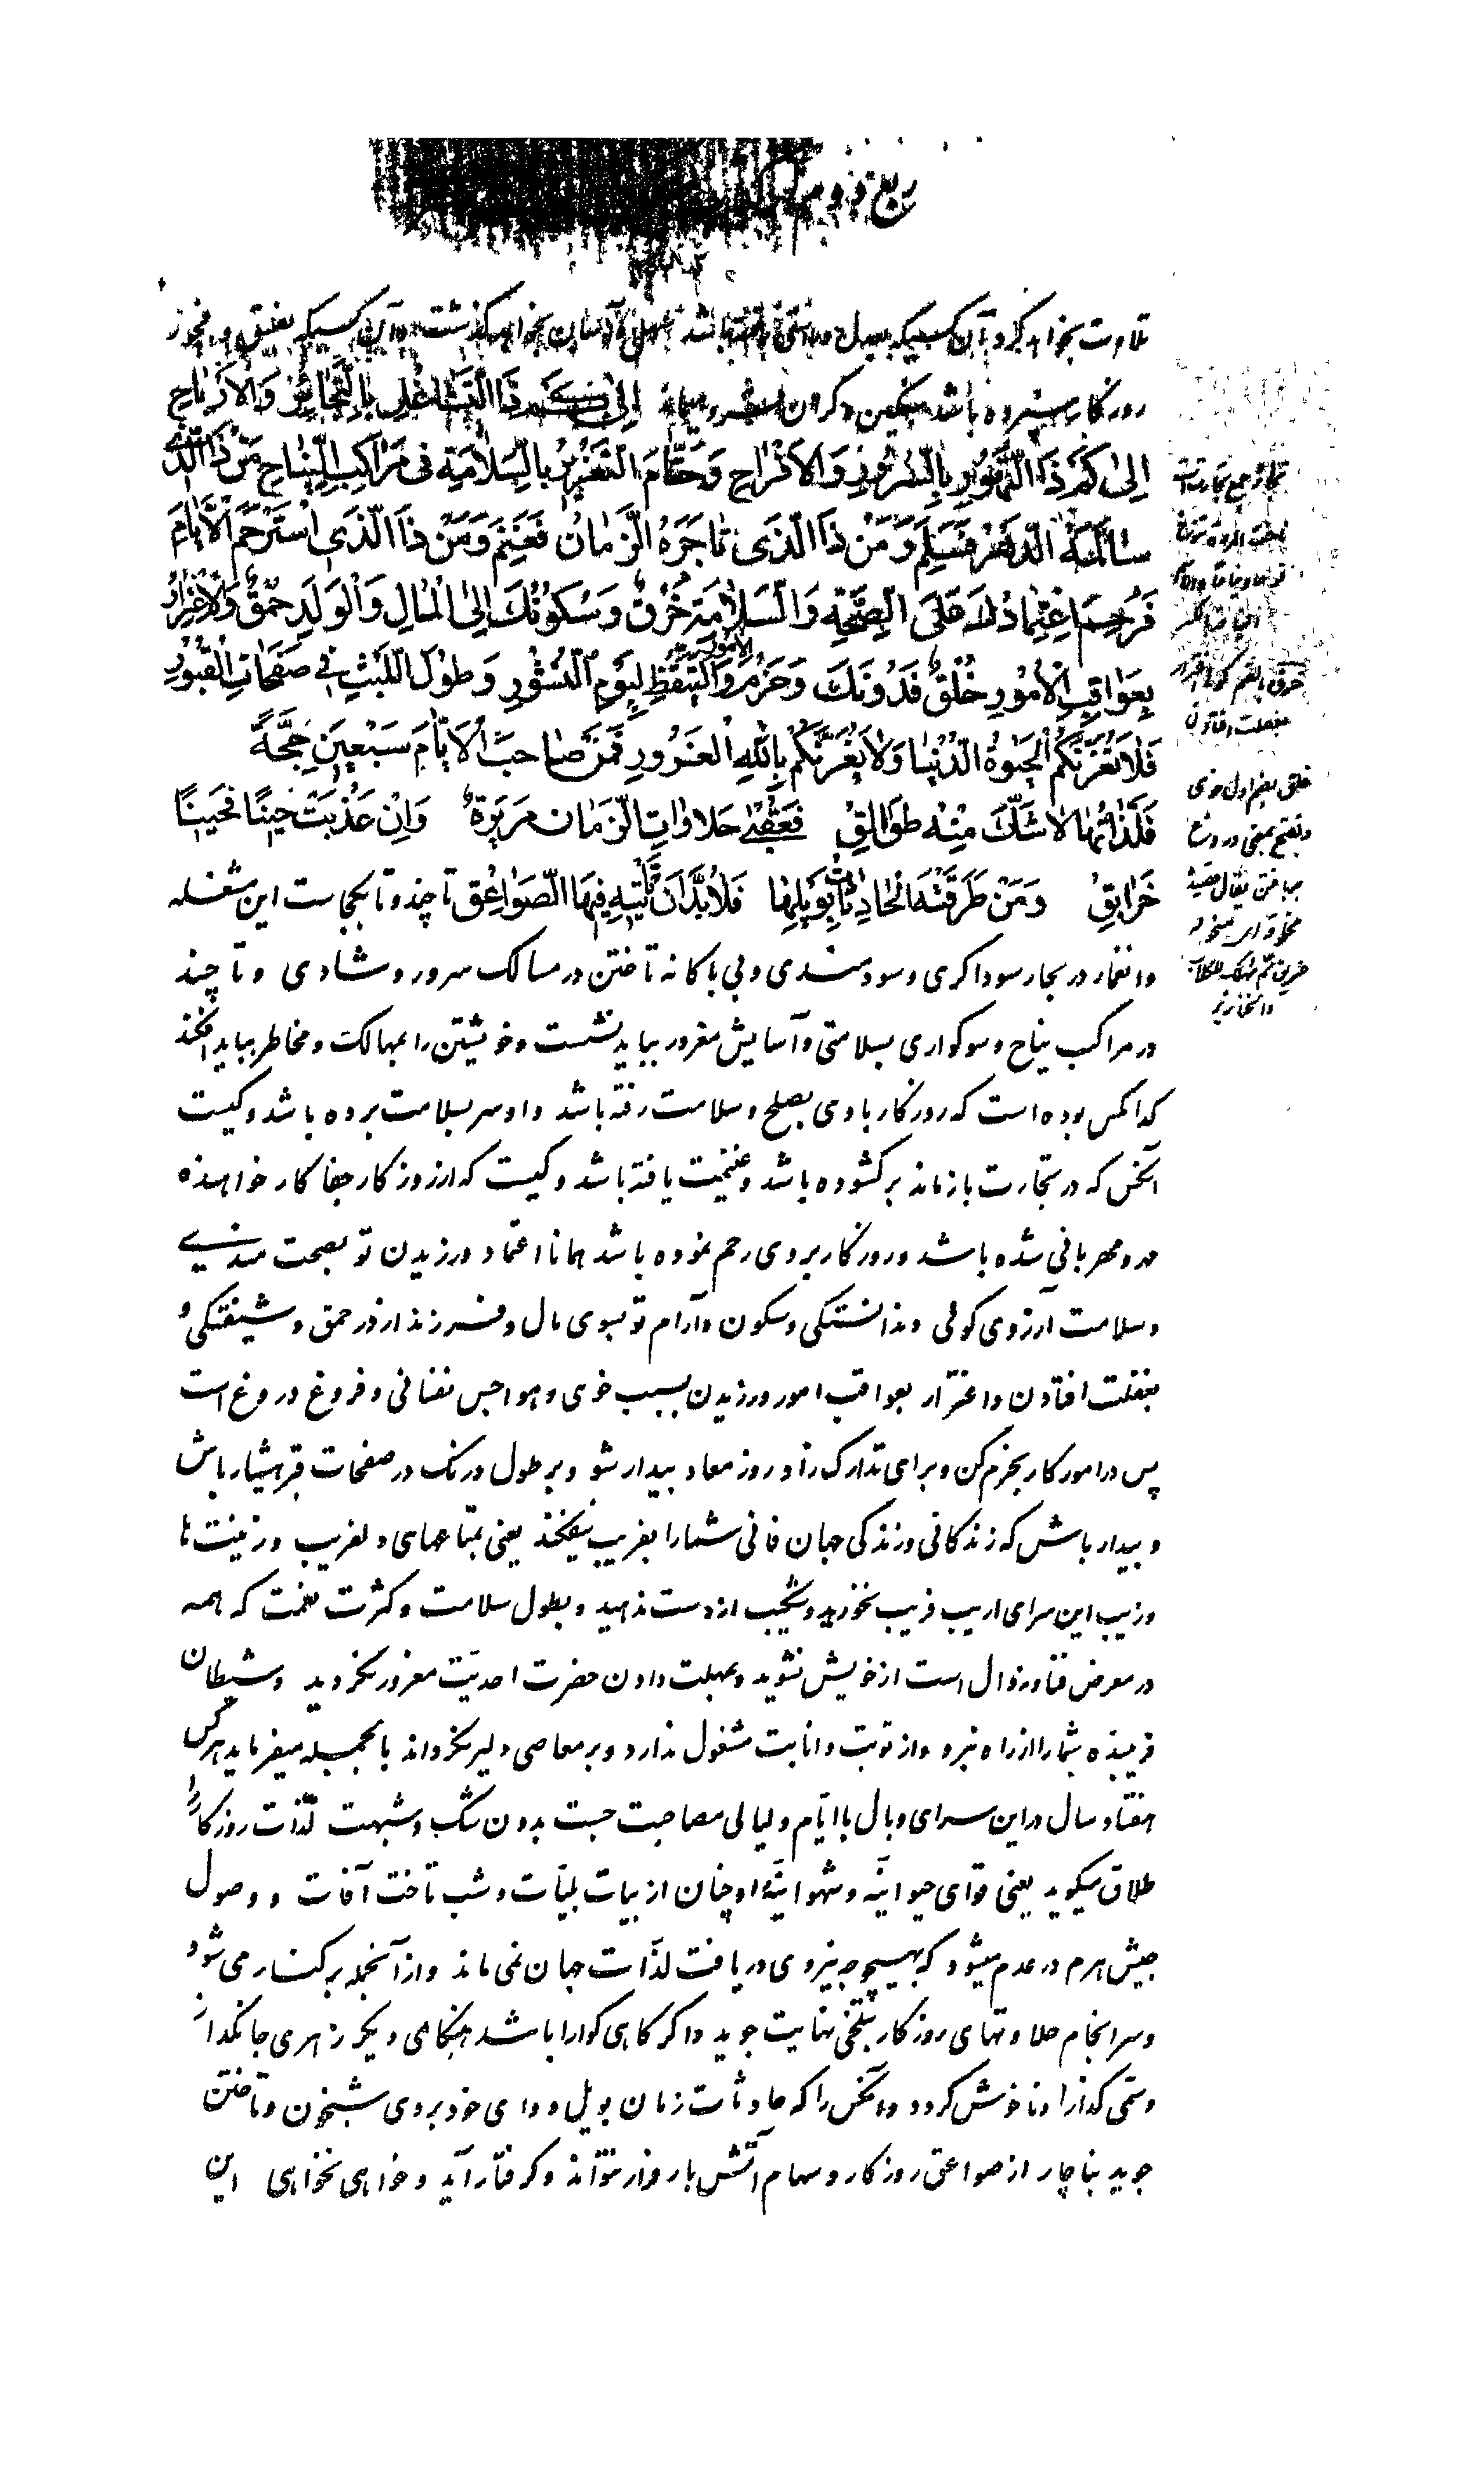 ربع دوم
تلاوت نخواهد کرد و آن کسیکه بعدل و راستی رفته باشد بآسان بخواهد گذشت و آن کسیکه بفسق و فجور
روزگار سپرده باشد سنگین و گران الی کم ذا التشاغل بالتجائر والارباح
اِلیٰ کَمْ ذَا التَّهَوُّرِ بِالسُّرُورِ وَالاَفْرَاحِ وَحَتَّامَ التَّغْرِیرُ بِالسَّلاٰمَةِ فی مَرَاکِبِ النِّیَاحِ مَنْ ذَا الَّذی
سٰالَمَهُ الدَّهْرُ فَسَلِمَ وَمَنْ ذَا الَّذی تٰاجَرَهُ الزَّمٰانُ فَغَنِمَ وَمَنْ ذَا الَّذی اسْتَرْحَمَ الْاَیّٰامَ
فَرُحِمَ اعْتِمٰادُکَ عَلَی الصِّحَّةِ وَالسَّلاٰمَةِ خُرْقٌ وَسُکُونُکَ اِلَی الْمٰالِ وَالْوَلَدِ حُمْقٌ وَالْاِغْتِرٰارُ
بِعَوٰاقِبِ الْاُمُورِ خُلْقٌ فَدُونَکَ وَحَزْمَ الْاُمُورِ وَالتَّیَقُّظَ لِیَوْمِ النُّشُورِ وَطُولَ اللَّبْثِ فی صَفَحٰاتِ الْقُبُورِ
فَلاٰ تَغُرَّنَّکُمُ الْحَیٰوةُ الدُّنْیٰا وَلاٰ یَغُرَّنَّکُمْ بِاللّٰهِ الْغَرُورِ فَمَنْ صٰاحَبَ الْاَیّٰامَ سَبْعِینَ حِجَّةً
فَلَذّٰاتُهٰا لاٰ شَکَّ مِنْهُ طَوٰالِقٌ فَعُقْبیٰ حَلاٰوٰاتِ الزَّمٰانِ مَرِیرَةٌ وَاِنْ عَذُبَتْ حِینًا فَحِینًا
خَرٰابِقٌ وَمَنْ طَرَقَتْهُ الْحٰادِثٰاتُ بِوَیْلِهٰا فَلاٰبُدَّ اَنْ تَأْتِیهِ فِیهَا الصَّوٰاعِقُ تا چند و تا بکجاست این مشغله
و انغمار در بحار سوداگری و سودمندی و بی باکانه تاختن در مسالک سرور و شادی و تا چند
در مراکب نیاح و سوگواری بسلامتی و آسایش مغرور بباید نشست و خویشتن را بمهالک و مخاطر بباید افکند
کدامکس بوده است که روزگار با وی بصلح و سلامت رفته باشد و او سر بسلامت برده باشد و کیست
آنکس که در تجارت با زمانه برگشوده باشد و غنیمت یافته باشد و کیست که از روزگار جفاکار خواهنده
مهر و مهربانی شده باشد و روزگار بر وی رحم نموده باشد همانا اعتماد ورزیدن تو بصحت مندی
و سلامت آرزوی گولی و ندانستگی و سکون و آرام تو بسوی مال و فرزند از در حمق و شیفتگی و
بغفلت افتادن و اغترار بعواقب امور ورزیدن بسبب خوی و هواجس نفسانی و فروغ دروغ است
پس در امور کار بحزم کن و برای تدارک زاد روز معاد بیدار شو و بر طول درنک در صفحات قبر هشیار باش
و بیدار باش که زندگانی و زندگی جهان فانی شما را بفریب نیفکند یعنی بمتاعهای دلفریب و زینت ها
و زیب این سرای اریب فریب نخورید و شکیب از دست ندهید و بطول سلامت و کثرت نعمت که همه
در معرض فنا و زوال است از خویش نشوید و بمهلت دادن حضرت احدیّت مغرور نگردید و شیطان
فریبنده شما را از راه نبرد و از توبت و انابت مشغول ندارد و بر معاصی دلیر نگرداند بالجمله میفرماید هر کس
هفتاد سال در این سرای وبال با ایّام و لیالی مصاحبت جست بدون شک و شبهت لذّات روزگار را
طلاق میگوید یعنی قوای حیوانیّه و شهوانیّه او چنان از بیات بلیّات و شب تاخت آفات و وصول
جیش هرم در عدم میشود که بهیچوجه نیروی دریافت لذّات جهان نمی ماند و از آنجمله بر کنار می شود
و سرانجام حلاوتهای روزگار بتلخی نهایت جوید و اگر گاهی گوارا باشد هنگامی دیگر زهری جانگداز
و سمّی گدازا و ناخوش گردد و آنکس را که حادثات زمان بویل و وای خود بر وی شبیخون و تاختن
جوید بناچار از صواعق روزگار و سهام آتش بار فرار نتواند و گرفتار آید و خواهی نخواهی این
تجائر جمع تجارت است
بغفلت افتادن
خلق بضم اول خوی
و بفتح بمعنی دروغ